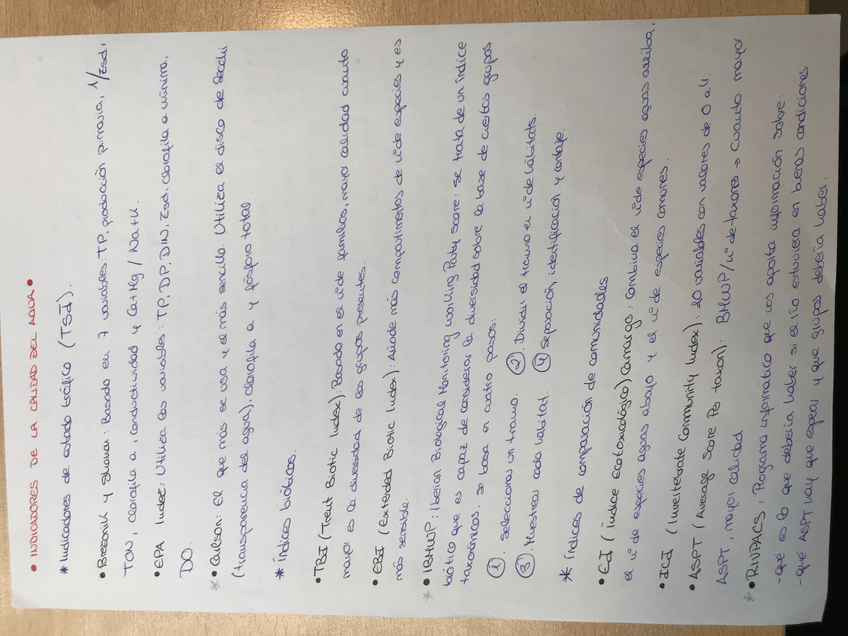 • INDICADORES DE LA CALIDAD DEL AGUA •
* Indicadores de estado trófico (TSI).
• Brezonik y Shanon: Basado en 7 variables: TP, producción primaria, 1/zsd,
TON, clorofila a, conductividad y Ca+Mg / Na+K.
• EPA Index: Utiliza las variables: TP, DP, DIN, Zsd, clorofila a mínima,
DO.
* • Carlson: El que más se usa y el más sencillo. Utiliza el disco de Secchi
(transparencia del agua), clorofila a y fósforo total.
* Índices bióticos.
• TBI (Trent Biotic Index): Basado en el nº de familias, mayor calidad cuanto
mayor es la diversidad de los grupos presentes.
• EBI (Extended Biotic Index): Añade más compartimentos de nº de especies y es
más sensible.
* • IBMWP: Iberian Biological Monitoring Working Party Score: Se trata de un índice
biótico que es capaz de considerar la diversidad sobre la base de ciertos grupos
taxonómicos. Se basa en cuatro pasos:
① . Seleccionar un tramo. ② . Dividir el tramo en nº de hábitats.
③ . Muestrear cada hábitat. ④ Separación, identificación y contaje.
* Índices de comparación de comunidades
• EI (índice Ecotoxicológico) Camargo: combina el nº de especies aguas arriba,
el nº de especies aguas abajo y el nº de especies comunes.
• ICI (Invertebrate Community Index): 10 variables con valores de 0 a 4.
• ASPT (Average Score Per taxon): BMWP/nº de taxones → Cuanto mayor
ASPT, mayor calidad.
* • RIVPACS: Programa informático que nos aporta información sobre:
- que es lo que debería haber si el río estuviera en buenas condiciones
- qué ASPT hay que esperar y que grupos debería haber.